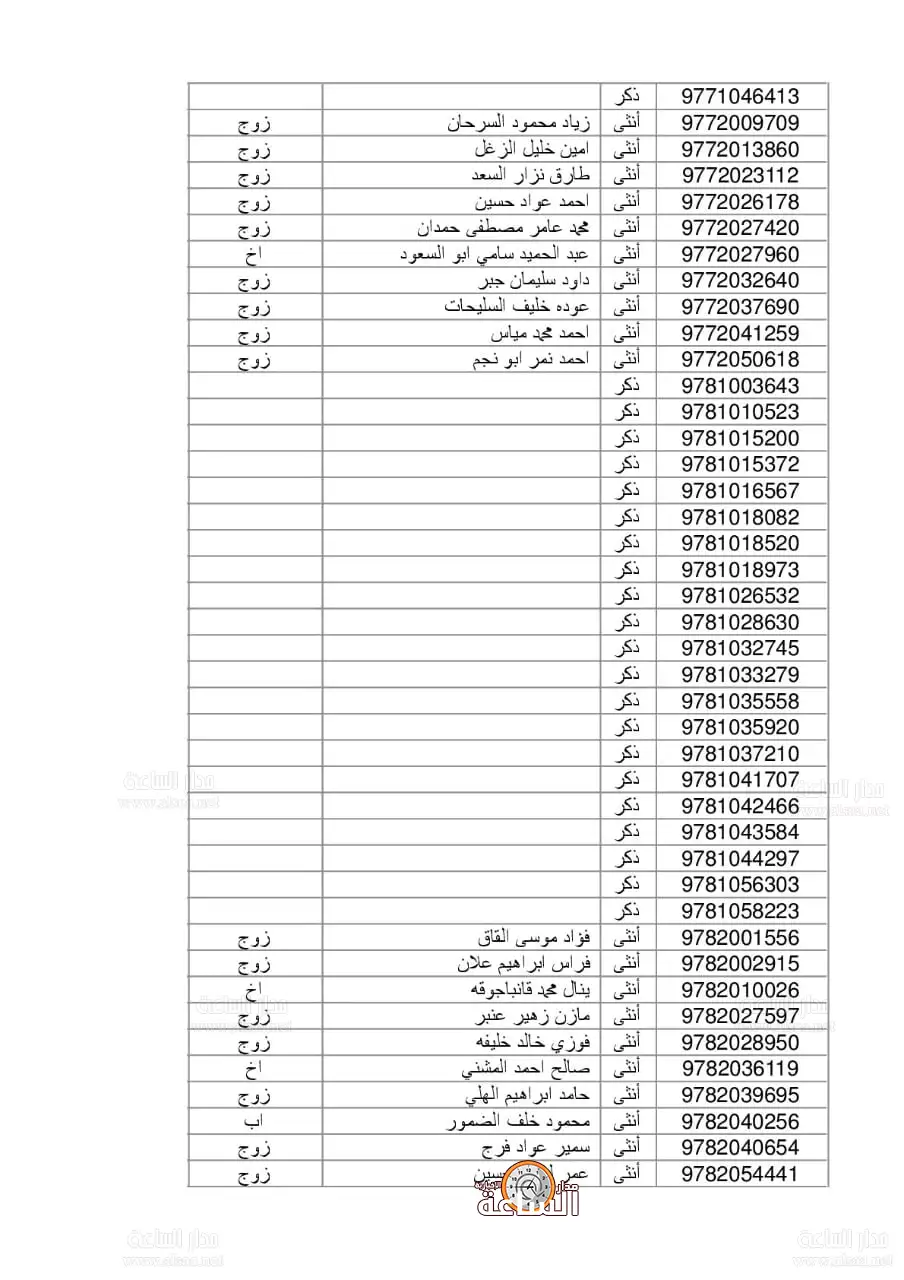 9771046413 ذكر
9772009709 أنثى زياد محمود السرحان زوج
9772013860 أنثى امين خليل الزغل زوج
9772023112 أنثى طارق نزار السعد زوج
9772026178 أنثى احمد عواد حسين زوج
9772027420 أنثى محمد عامر مصطفى حمدان زوج
9772027960 أنثى عبد الحميد سامي ابو السعود اخ
9772032640 أنثى داود سليمان جبر زوج
9772037690 أنثى عوده خليف السليحات زوج
9772041259 أنثى احمد محمد مياس زوج
9772050618 أنثى احمد نمر ابو نجم زوج
9781003643 ذكر
9781010523 ذكر
9781015200 ذكر
9781015372 ذكر
9781016567 ذكر
9781018082 ذكر
9781018520 ذكر
9781018973 ذكر
9781026532 ذكر
9781028630 ذكر
9781032745 ذكر
9781033279 ذكر
9781035558 ذكر
9781035920 ذكر
9781037210 ذكر
9781041707 ذكر
9781042466 ذكر
9781043584 ذكر
9781044297 ذكر
9781056303 ذكر
9781058223 ذكر
9782001556 أنثى فؤاد موسى القاق زوج
9782002915 أنثى فراس ابراهيم علان زوج
9782010026 أنثى ينال محمد قانباجوقه اخ
9782027597 أنثى مازن زهير عنبر زوج
9782028950 أنثى فوزي خالد خليفه زوج
9782036119 أنثى صالح احمد المشني اخ
9782039695 أنثى حامد ابراهيم الهلي زوج
9782040256 أنثى محمود خلف الضمور اب
9782040654 أنثى سمير عواد فرج زوج
9782054441 أنثى عمر زوج
مدار الساعة الاخبارية
مدار الساعة
www.alsaa.net
مدار الساعة
www.alsaa.net
مدار الساعة
www.alsaa.net
مدار الساعة
www.alsaa.net